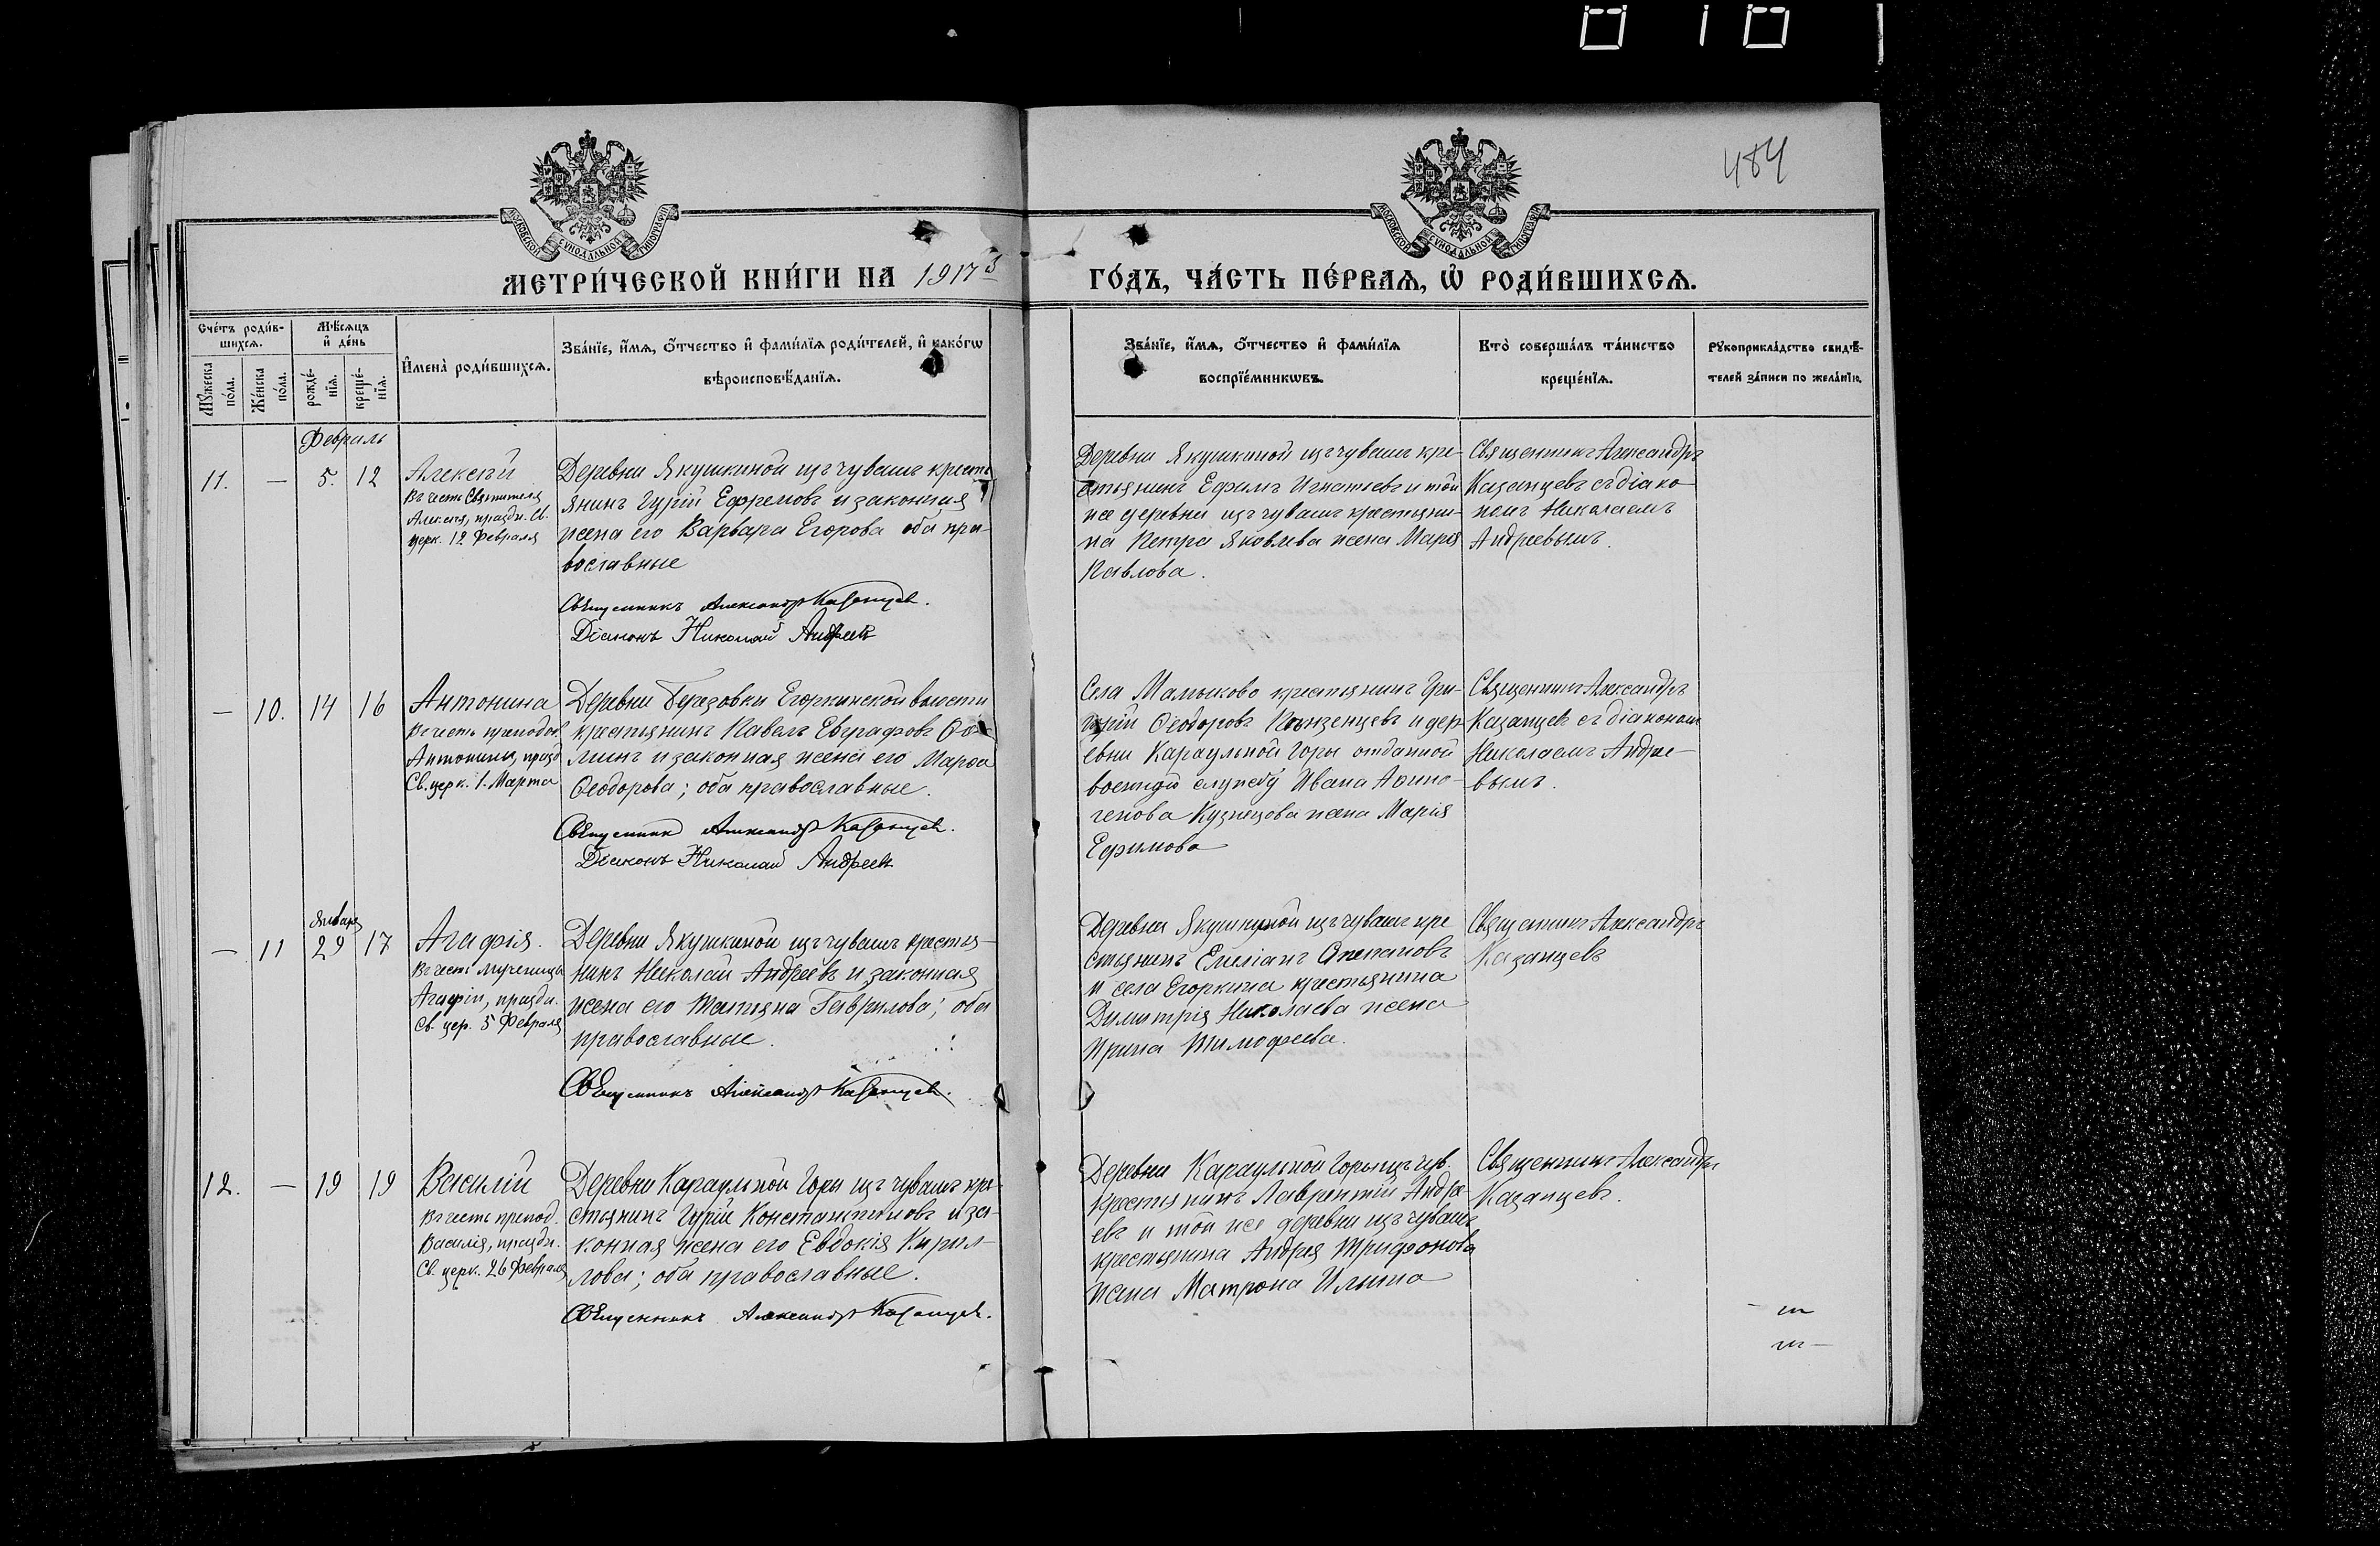 484
МОСКОВСКОЙ СѴНОДАЛЬНОЙ ТИПОГРАФІИ
МОСКОВСКОЙ СѴНОДАЛЬНОЙ ТИПОГРАФІИ
МЕТРИ́ЧЕСКОЙ КНИ́ГИ НА 1917й
ГО́ДЪ, ЧА́СТЬ ПЕ́РВАѦ, Ѡ РОДИ́ВШИХСѦ.
Сче́тъ роди́в-
шихсѧ.
Мꙋ́жеска по́ла.
Же́нска по́ла.
Мѣ́сѧцъ
и҆ де́нь
рожде́-нїѧ.
креще́-нїѧ.
И҆мена̀ роди́вшихсѧ.
Зва́нїе, и҆́мѧ, ѻ҆́тчество и҆ фами́лїѧ роди́телей, и҆ како́гѡ
вѣроисповѣ́данїѧ.
Зва́нїе, и҆́мѧ, ѻ҆́тчество и҆ фами́лїѧ
воспрїе́мникѡвъ.
Кто̀ соверша́лъ та́инство
креще́нїѧ.
Рꙋкоприкла́дство свидѣ́-
телей за́писи по жела́нїю.
Февраль
11.
—
5.
12
Алексѣй
Въ честь Святителя
Алексія, праздн. Св.
церк. 12 Февраля
Деревни Якушкиной изъ чувашъ кресть
янинъ Гурій Ефремовъ и законная
жена его Варвара Егорова оба пра-
вославные
Священникъ Александръ Казанцевъ.
Діаконъ Николай Андреевъ
Деревни Якушкиной изъ чувашъ кре-
стьянинъ Ефимъ Игнатьевъ и той
же деревни изъ чувашъ крестьяни-
на Петра Яковлева жена Марія
Павлова.
Священникъ Александръ
Казанцевъ съ діако-
номъ Николаемъ
Андреевымъ.
—
10.
14
16
Антонина
Въ честь преподоб.
Антонины, празд.
Св. церк. 1. Марта
Деревни Березовки Егоркинской волости
крестьянинъ Павелъ Евграфовъ
и законная жена его Марѳа
Ѳеодорова; оба православные.
Священникъ Александръ Казанцевъ.
Діаконъ Николай Андреевъ
Села Мамыково крестьянинъ Гри-
горій Ѳеодоровъ Пензенцевъ и дер-
евни Караульной Горы отданной
военную службу Ивана Аѳино-
генова Кузнецова жена Марія
Ефимова
Священникъ Александръ
Казанцевъ съ діакономъ
Николаемъ Андрее-
вымъ.
Января
—
11
29
17
Агафія.
Въ честь мученицы
Агафіи, праздн.
Св. цер. 5 Февраля
Деревни Якушкиной изъ чувашъ крестья-
нинъ Николай Андреевъ и законная
жена его Татьяна Гаврилова; оба
православные.
Священникъ Александръ Казанцевъ.
Деревни Якушкиной изъ чувашъ кре
стьянинъ Емиліанъ Степановъ
и села Егоркина крестьянина
Димитрія Николаева жена
Ирина Тимофеева.
Священникъ Александръ
Казанцевъ
12.
—
19
19
Василій
Въ честь препод.
Василія, праздн.
Св. церк. 26 Февраля
Деревни Караульной Горы изъ чувашъ кре-
стьянинъ Гурій Константиновъ и за-
конная жена его Евдокія Кирил-
лова; оба православные.
Священникъ Александръ Казанцевъ.
Деревни Караульной Горы изъ чув.
крестьянинъ Лаврентій Андре-
евъ и той же деревни изъ чувашъ
крестьянина Андрея Трифонова
жена Матрона Ильина
Священникъ Александръ
Казанцевъ.